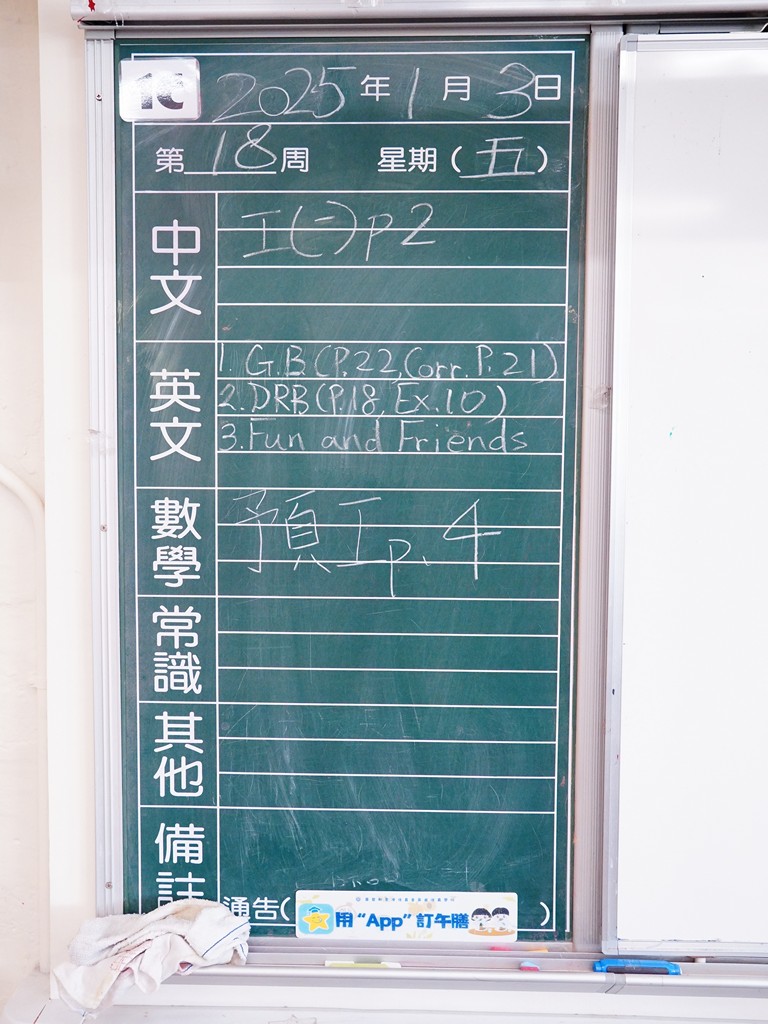 1C 2025年1月3日
第18周 星期(五)
中文
工(二)p2
英文
1. G.B(P.22,Corr.P.21)
2.DRB(P.18,Ex.10)
3.Fun and Friends
數學
預工p.4
常識
其他
備註
通告( )
用“App”訂午膳